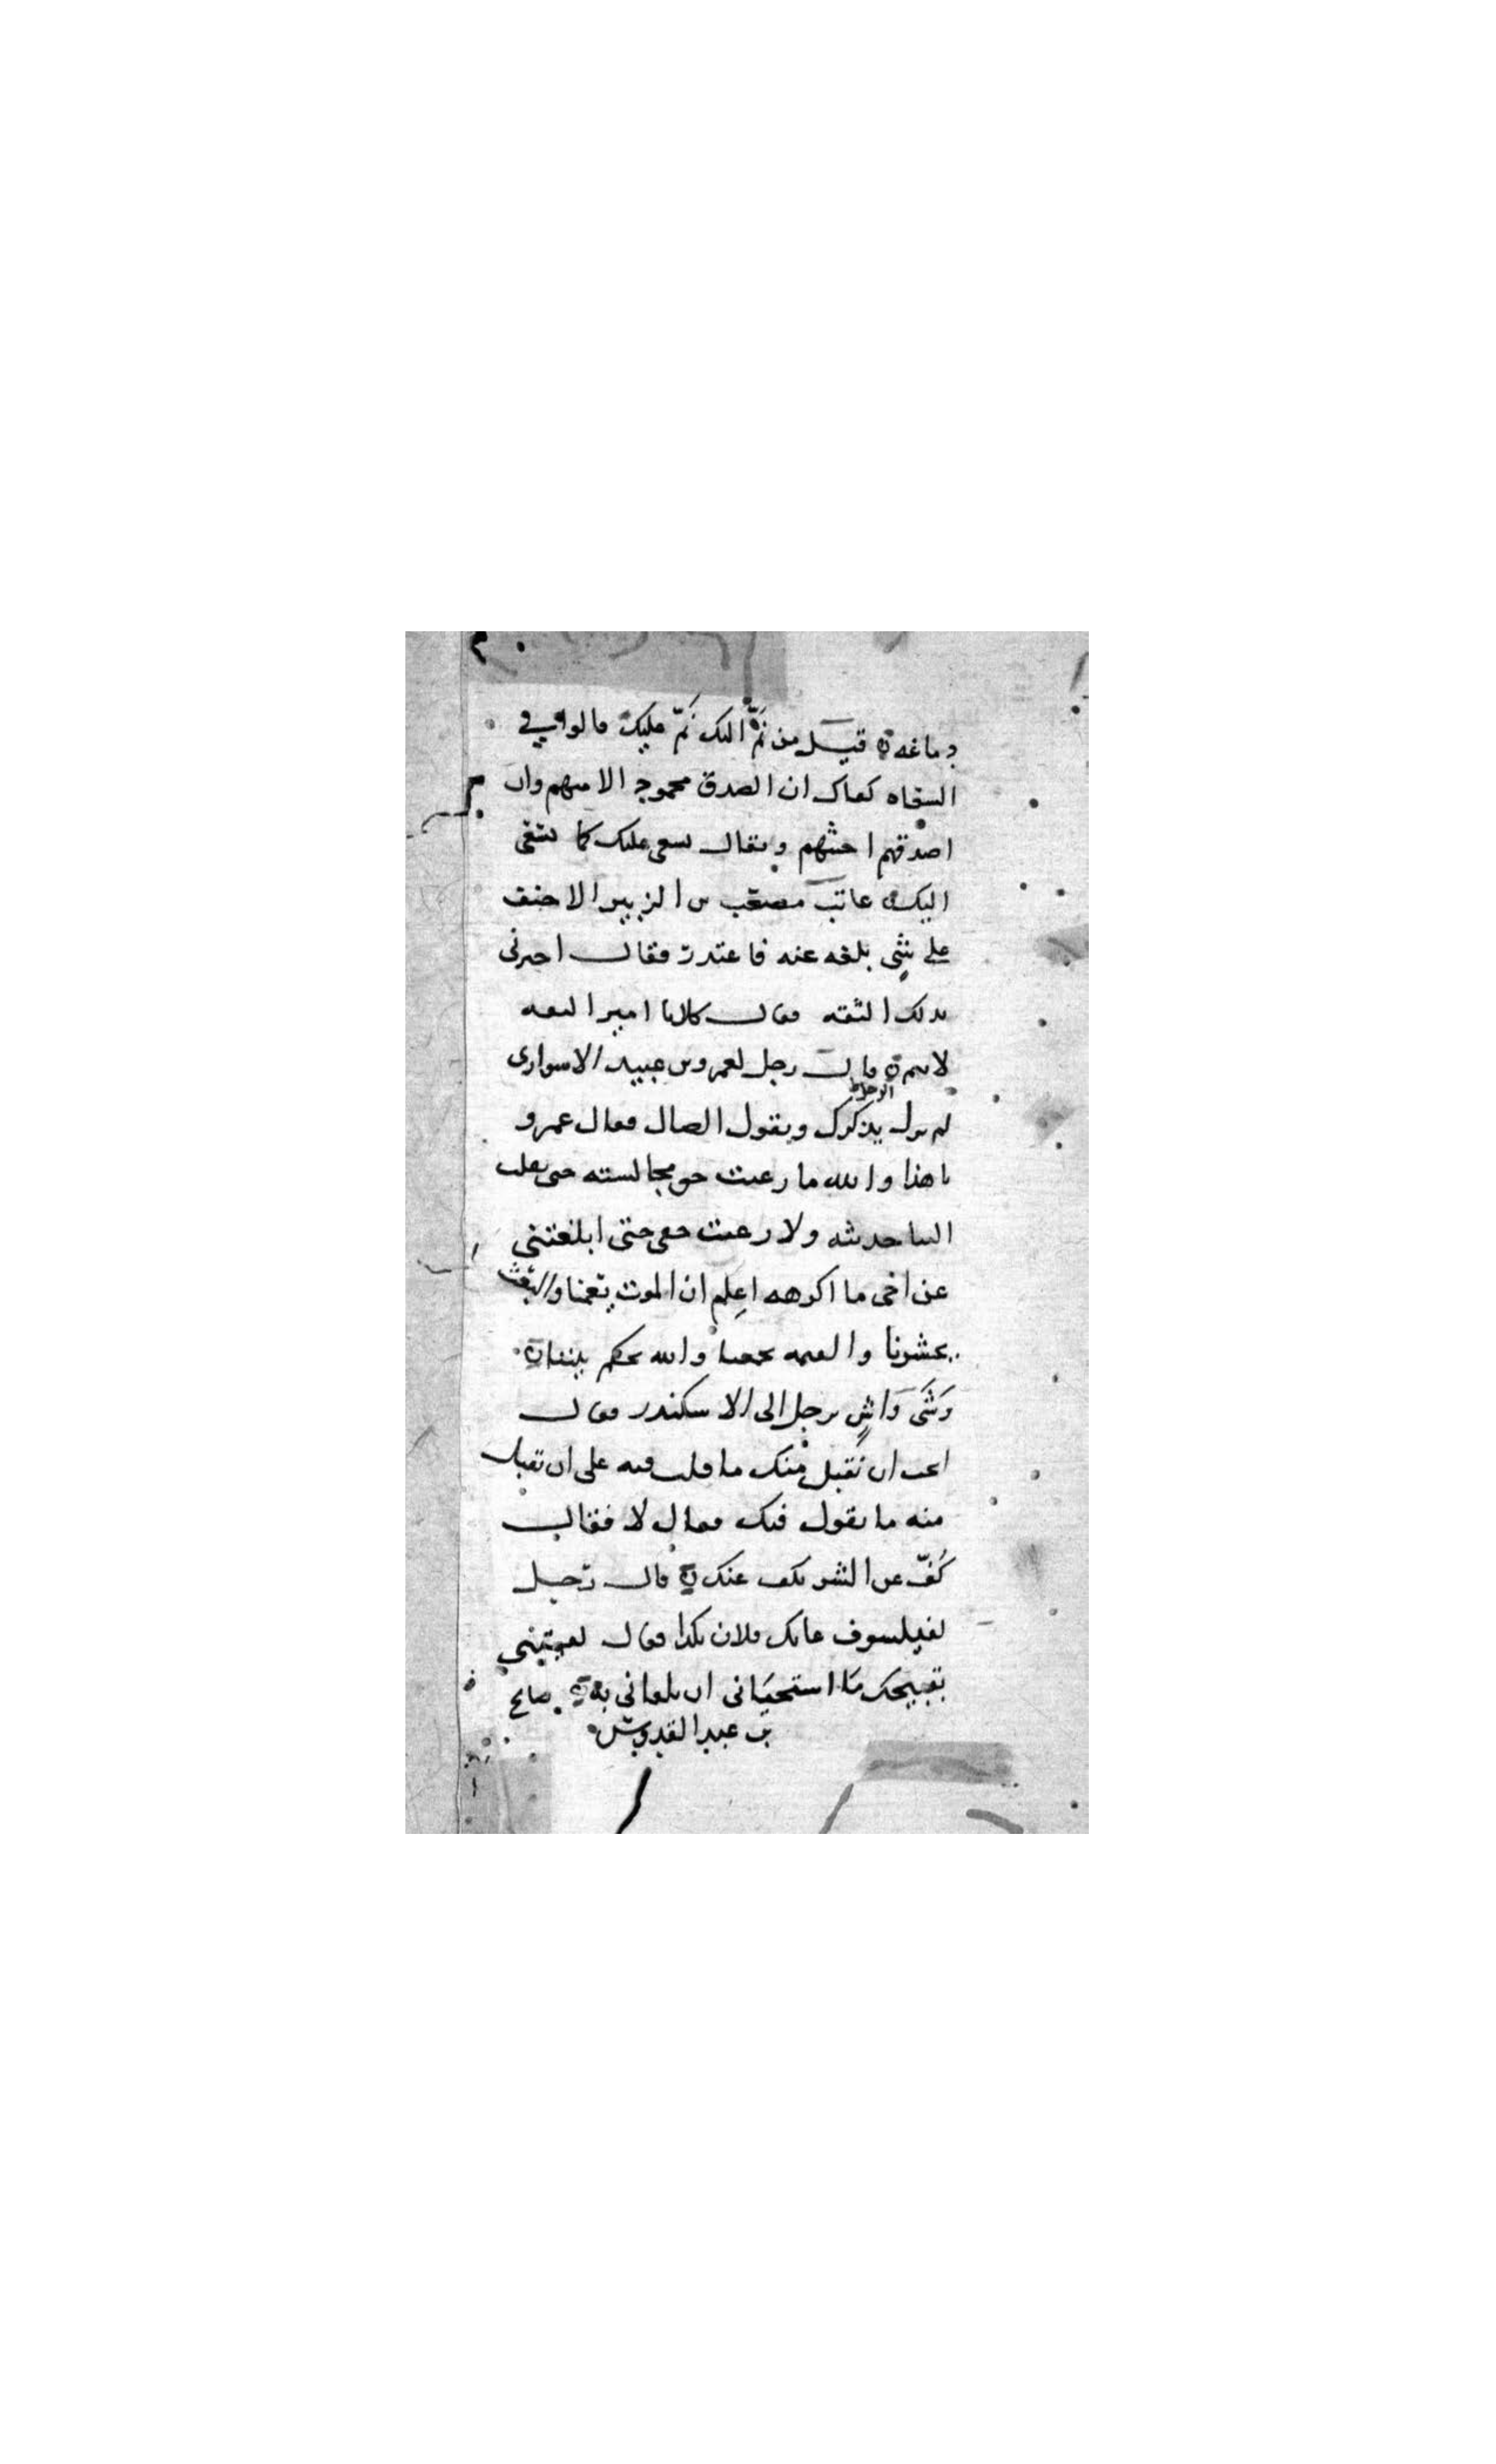 دماغه ه قيل من نمّ اليك نمّ عليك قالوا في
السعاه كفاك ان الصدق محمود الا منهم وان
اصدقهم اخبثهم ويقال يسعى عليك كما يسعى
اليك ه عاتب مصعب بن الزبير الاحنف
على شئ بلغه عنه فاعتذر فقال اخبرني
بذلك الثقه فقال كلا ايها الامير الثقه
لا ينم ه قال رجل لعمرو بن عبيد الاسوارى
لم يزل يذكرك ويقول الضال فقال عمرو
يا هذا والله ما رعيت حق مجالسته حين نقلت
الينا حديثه ولا رعيت حقى حتى ابلغتنى
عن اخى ما اكرهه اعلم ان الموت يعمنا والبعث
يحشرنا والقيمه تجمعنا والله يحكم بيننا ه
وَشَى وَاشٍ برجل الى الاسكندر فقال
اتحب ان نقبل منك ما قلت فيه على ان نقبل
منه ما يقول فيك فقال لا فقال
كُفّ عن الشر يكف عنك ه قال رجل
لفيلسوف عابك فلان بكذا فقال لقيتني
بقبحك ما استحيانى ان يلقانى به ه صالح
بن عبد القدوس